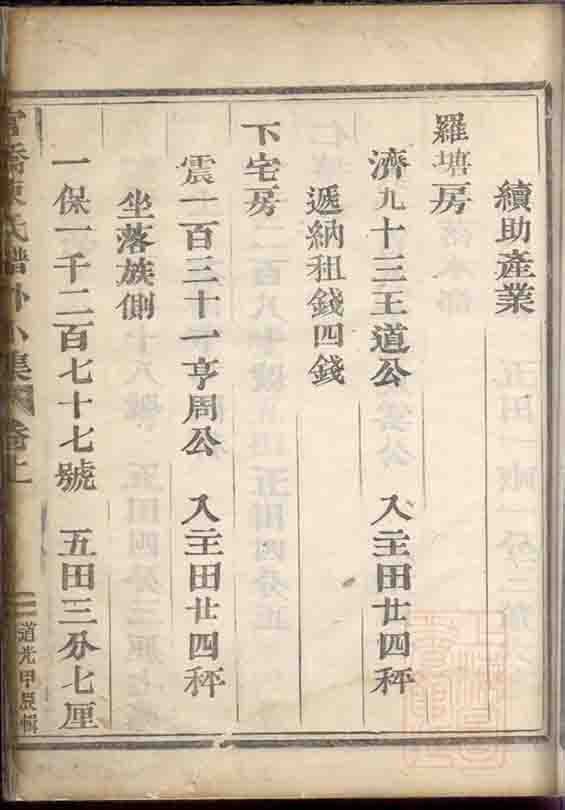 續助產業
羅塘房
濟九十三王道公 入主田廿四秤
遞納租錢四錢
下宅房
震一百三十一亨周公 入主田廿四秤
坐落族側
一保一千二百七十七號 五田三分七厘
氏譜外小集 卷上
道光甲辰輯